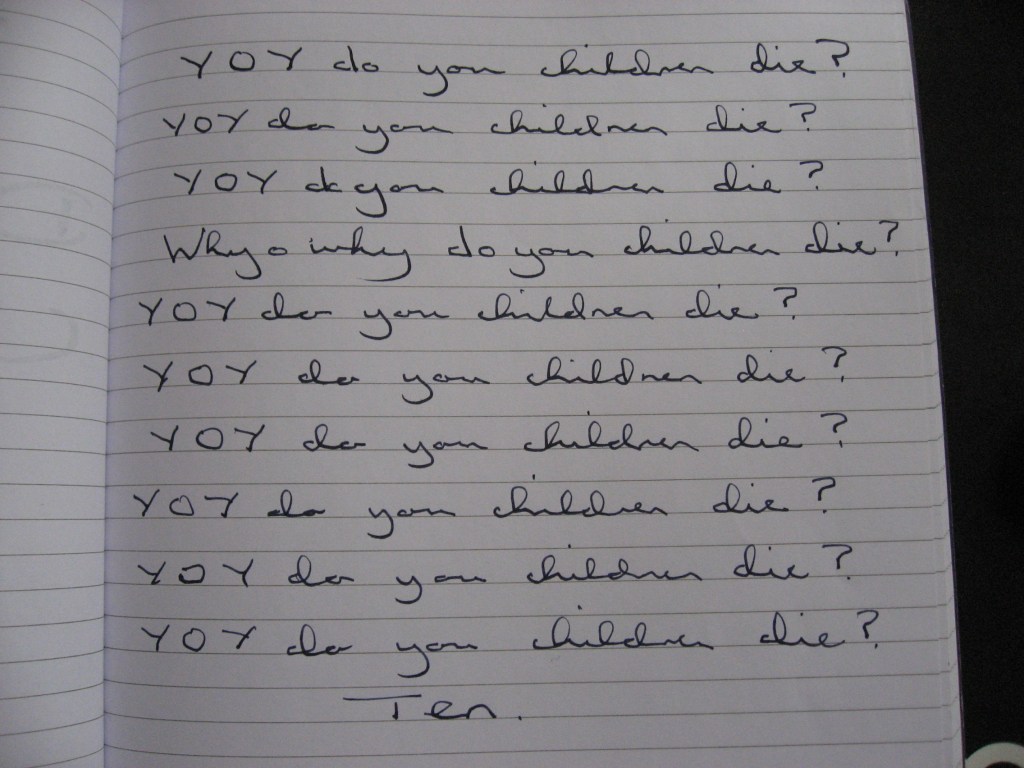 YOY do you children die?
YOY do you children die?
YOY do you children die?
Why o why do you children die?
YOY do you children die?
YOY do you children die?
YOY do you children die?
YOY do you children die?
YOY do you children die?
YOY do you children die?
Ten.